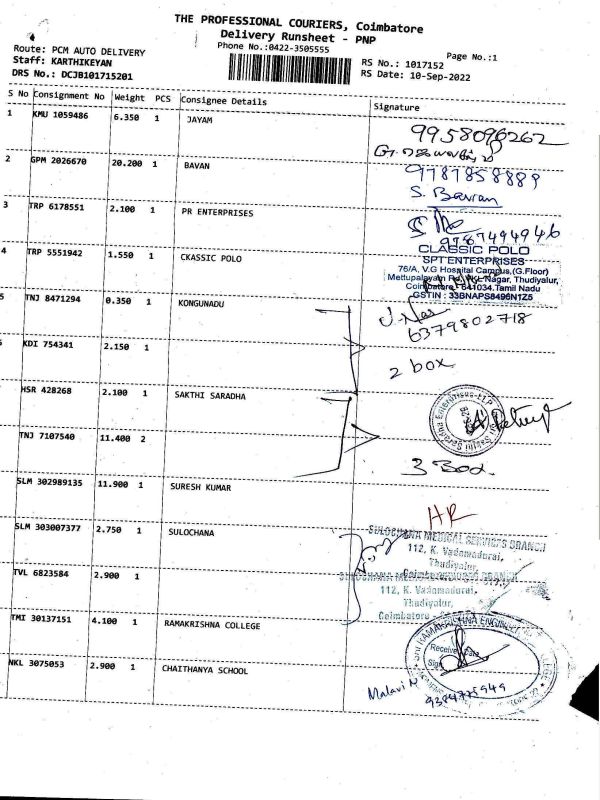 THE PROFESSIONAL COURIERS, Coimbatore
Delivery Runsheet - PNP
Phone No.:0422-3505555
Page No.:1
Route: PCM AUTO DELIVERY
Staff: KARTHIKEYAN
DRS No.: DCJB101715201
RS No.: 1017152
RS Date: 10-Sep-2022
S No Consignment No Weight PCS Consignee Details Signature
1 KMU 1059486 6.350 1 JAYAM
9958096262
2 GPM 2026670 20.200 1 BAVAN
9787858889
S. Bavan
3 TRP 6178551 2.100 1 PR ENTERPRISES
9787494946
4 TRP 5551942 1.550 1 CKASSIC POLO
CLASSIC POLO
SPT ENTERPRISES
76/A, V.G Hospital Campus,(G.Floor)
Mettupalayam Nagar, Thudiyalur,
Coimbatore - 641034.Tamil Nadu
GSTIN : 33BNAPS8496N1Z5
5 TNJ 8471294 0.350 1 KONGUNADU
6379802718
KDI 754341 2.150 1
2 box
HSR 428268 2.100 1 SAKTHI SARADHA
TNJ 7107540 11.400 2
3 Box
SLM 302989135 11.900 1 SURESH KUMAR
HR
SLM 303007377 2.750 1 SULOCHANA
SULOCHANA MEDICAL SERVICES BRANCH
112, K. Vadamadurai,
Thudiyalur,
TVL 6823584 2.900 1
112, K. Vadamadurai,
Thudiyalur,
Coimbatore
TMI 30137151 4.100 1 RAMAKRISHNA COLLEGE
NKL 3075053 2.900 1 CHAITHANYA SCHOOL
Malavi N
9384775949